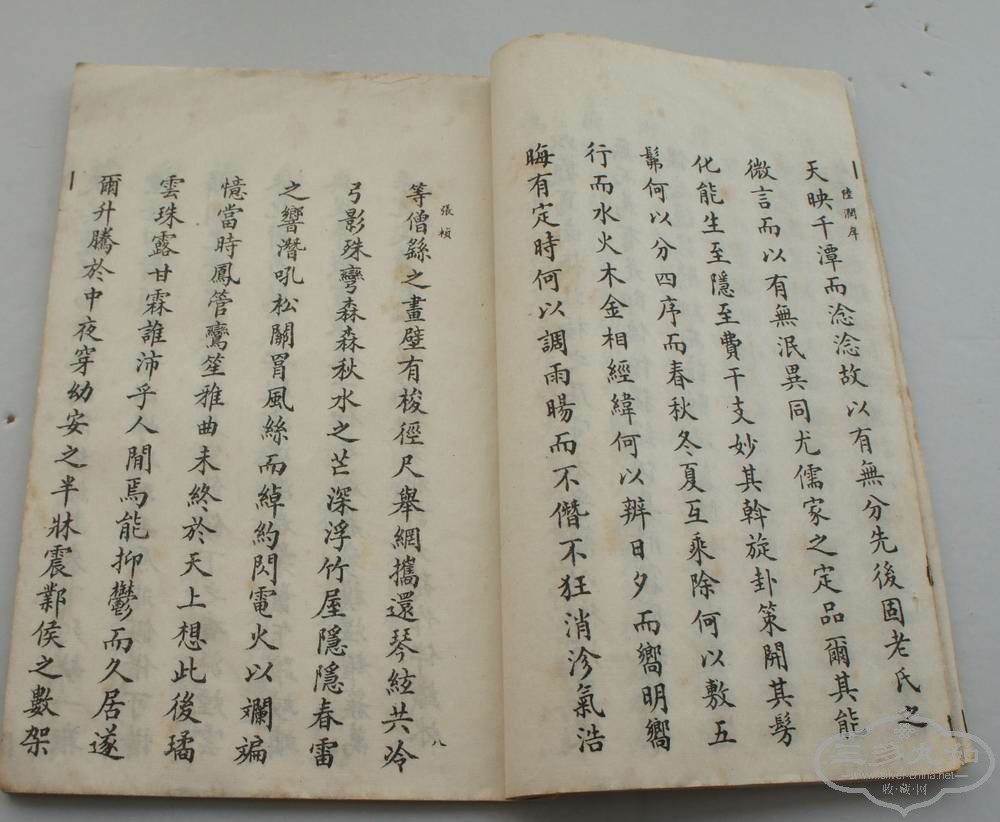 陸潤庠
天映千潭而淰淰故以有無分先後固老氏之
微言而以有無泯異同尤儒家之定品爾其能
化能生至隱至費干支妙其斡旋卦策開其髣
髴何以分四序而春秋冬夏互乘除何以敷五
行而水火木金相經緯何以辨日夕而嚮明嚮
晦有定時何以調雨暘而不僭不狂消沴氣浩
張楨
等僧繇之畫壁有梭徑尺舉網攜還琴絃共冷
弓影殊彎森森秋水之芒深浮竹屋隱隱春雷
之響潛吼松關罥風絲而綽約閃電火以斕斒
憶當時鳳管鸞笙雅曲未終於天上想此後璚
雲珠露甘霖誰沛乎人間焉能抑鬱而久居遂
爾升騰於中夜穿幼安之半牀震鄴侯之數架
八
收·藏·网